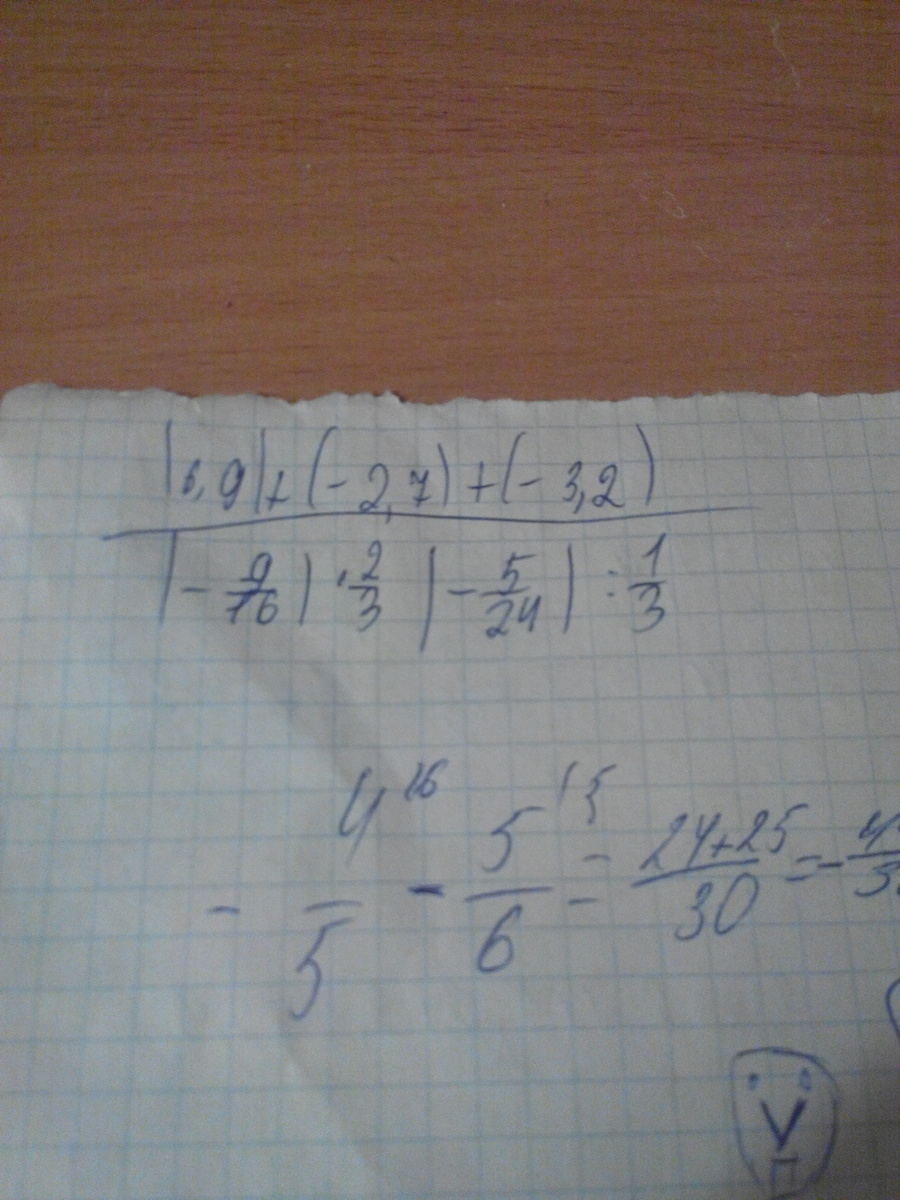 |6,9|+(-2,7)+(-3,2)
|-9/16|·2/3 |-5/24|:1/3
-4/5 |6 - 5/6 |5 = 24+25/30 = -4